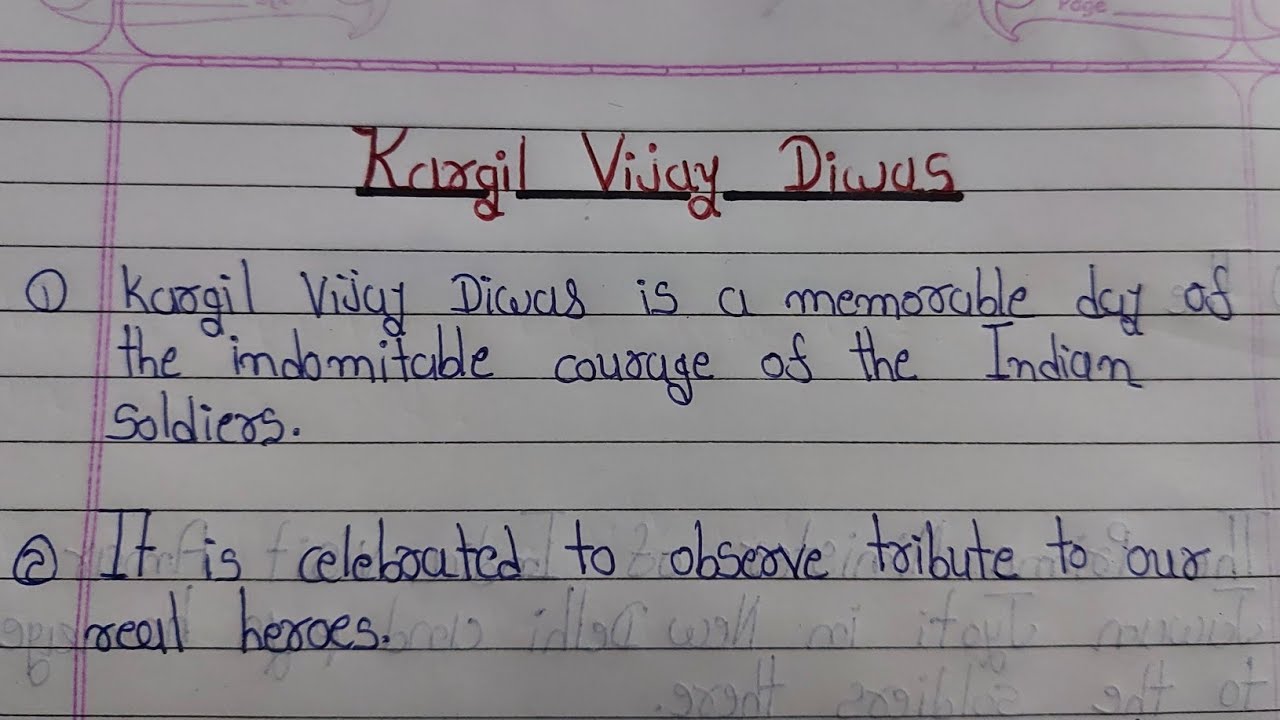 Page
Kargil Vijay Diwas
① Kargil Vijay Diwas is a memorable day of
the indomitable courage of the Indian
soldiers.
② It is celebrated to observe tribute to our
real heroes.